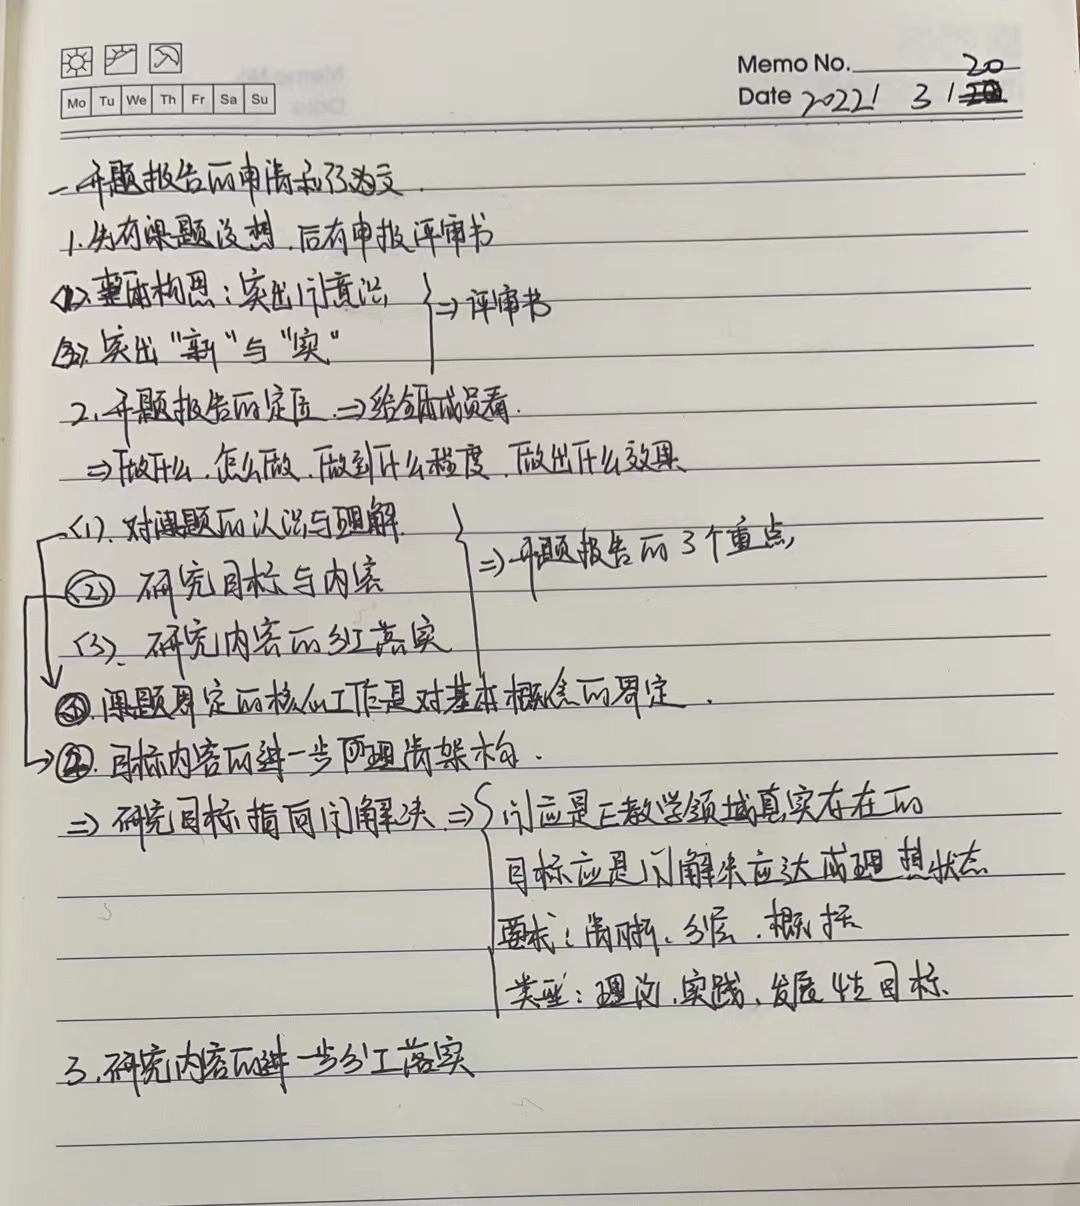 Memo No.
Mo Tu We Th Fr Sa Su
Date 2022/ 3 / 20
一开题报告的申请和行文.
1.先有课题设想.后有申报评审书
(1).整体构思:突出问意识
(2).突出"新"与"实"
⇒评审书
2.开题报告的定位.⇒给全体成员看.
⇒做什么.怎么做.做到什么程度.做出什么效果
(1).对课题的认识与理解.
(2) 研究目标与内容
(3).研究内容的分工落实
⇒开题报告的3个重点,
①.课题界定的核心工作是对基本概念的界定.
②.目标内容的进一步梳理清架构.
⇒研究目标指向问解决⇒
问应是在教学领域真实存在的
目标应是问解决应达成理想状态
要求:清晰、分层.概括
类型:理论.实践.发展性目标.
3.研究内容的进一步分工落实